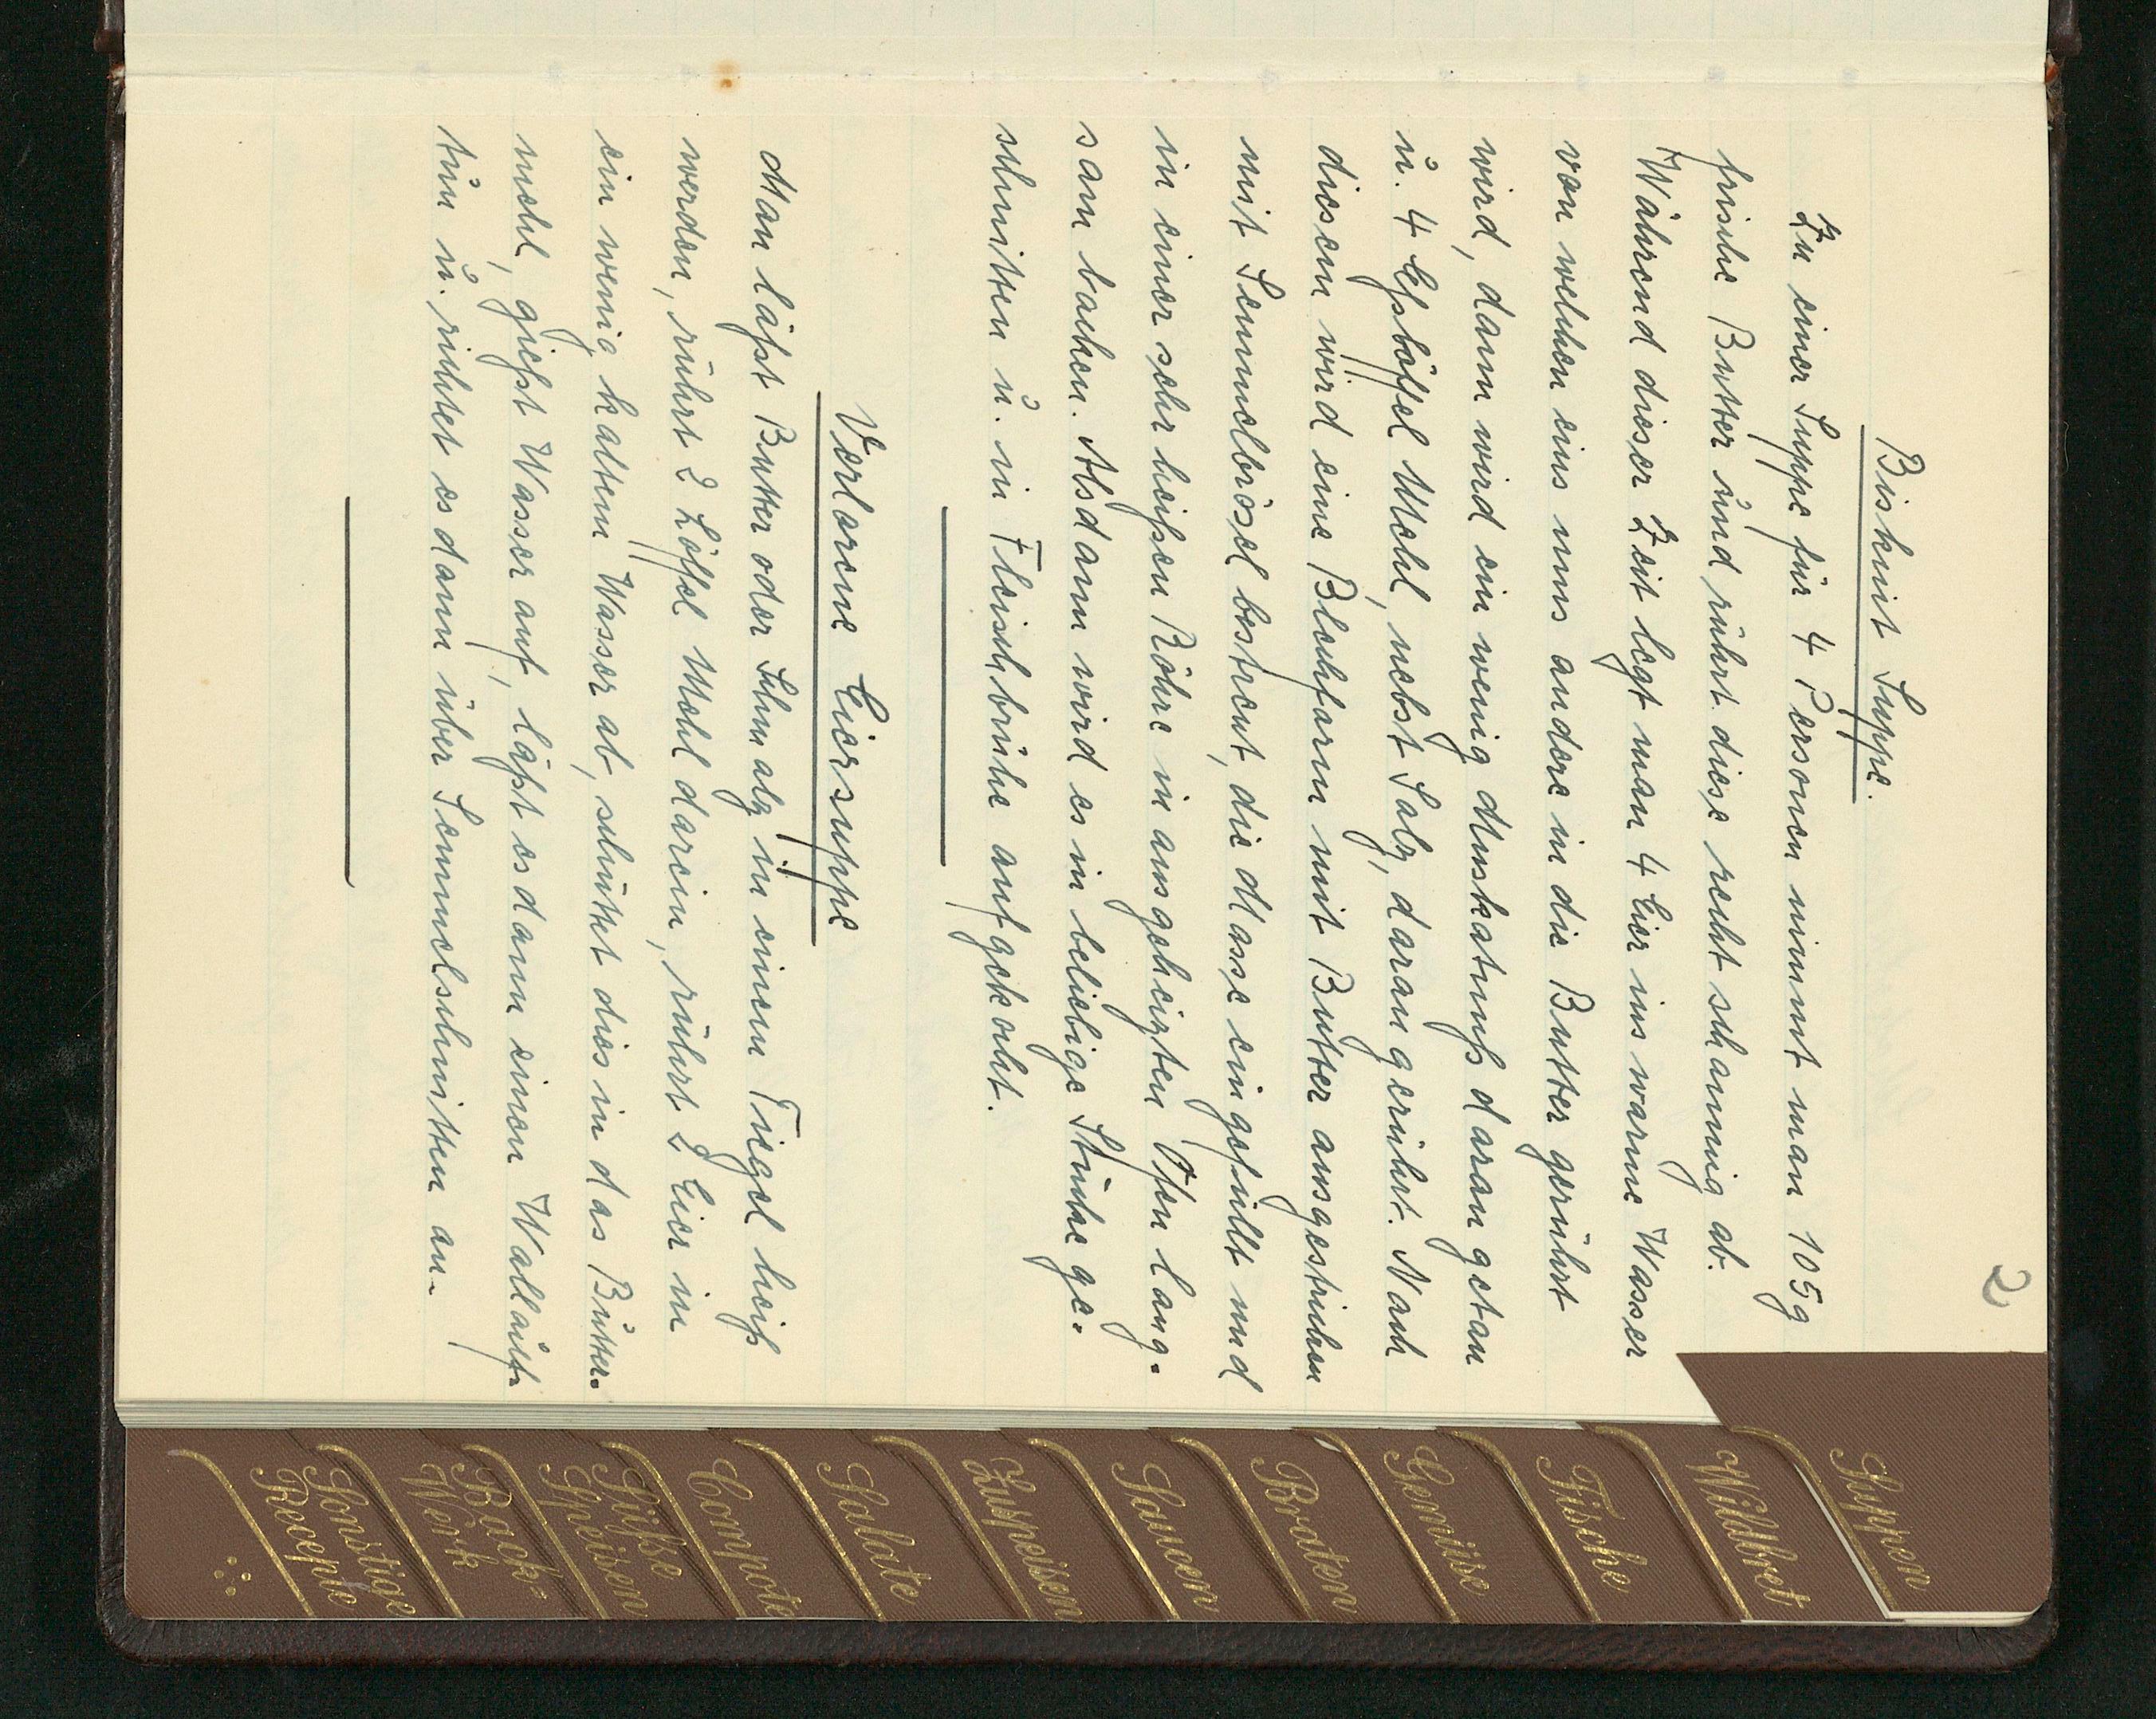 2
Biskuit Suppe.
Zu einer Suppe für 4 Personen nimmt man 105g
frische Butter und rührt diese recht schaumig ab.
Während dieser Zeit legt man 4 Eier ins warme Wasser
von welchen eins ums andere in die Butter gerührt
wird, dann wird ein wenig Muskatnuß daran getan
u. 4 Eßlöffel Mehl, nebst Salz, daran gerührt. Nach
diesem wird eine Blechform mit Butter ausgestrichen
mit Semmelbrösel bestreut, die Masse eingefüllt und
in einer sehr heißen Röhre in ausgeheizten Ofen lang-
sam backen. Alsdann wird es in beliebige Stücke ge-
schnitten u. in Fleischbrühe aufgekocht.
Verlorene Eiersuppe
Man läßt Butter oder Schmalz in einem Tiegel heiß
werden, rührt 2 Löffel Mehl darein, rührt 2 Eier in
ein wenig kaltem Wasser ab, schüttet dies in das Butter-
mehl, gießt Wasser auf, läßt es dann einen Wall auf-
tun u. richtet es dann über Semmelschnitten an.
Suppen
Wildbret
Fische
Gemüse
Braten
Saucen
Zuspeisen
Salate
Compote
Süße
Speisen
Back-
Werk
Sonstige
Recepte